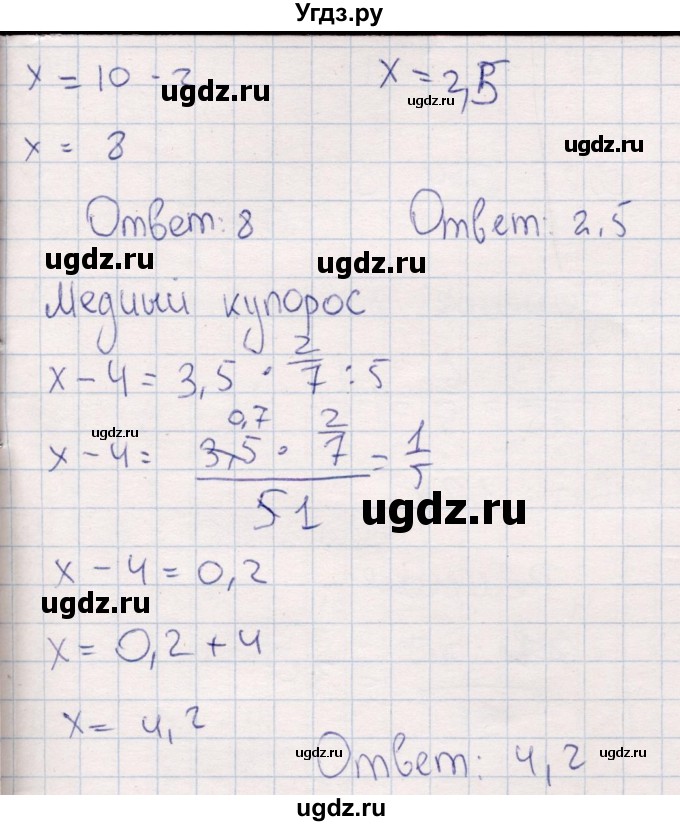 Угдз.ру
x = 10 - 2
x = 2,5
ugdz.ru
ugdz.ru
x = 8
ugdz.ru
Ответ: 8
Ответ: 2,5
ugdz.ru
ugdz.ru
Медный купорос
x - 4 = 3,5 · 2/7 : 5
ugdz.ru
0,7
x - 4 = 3,5 · 2/7 = 1/5
51
ugdz.ru
x - 4 = 0,2
ugdz.ru
x = 0,2 + 4
x = 4,2
ugdz.ru
Ответ: 4,2
ugdz.ru
ugdz.ru